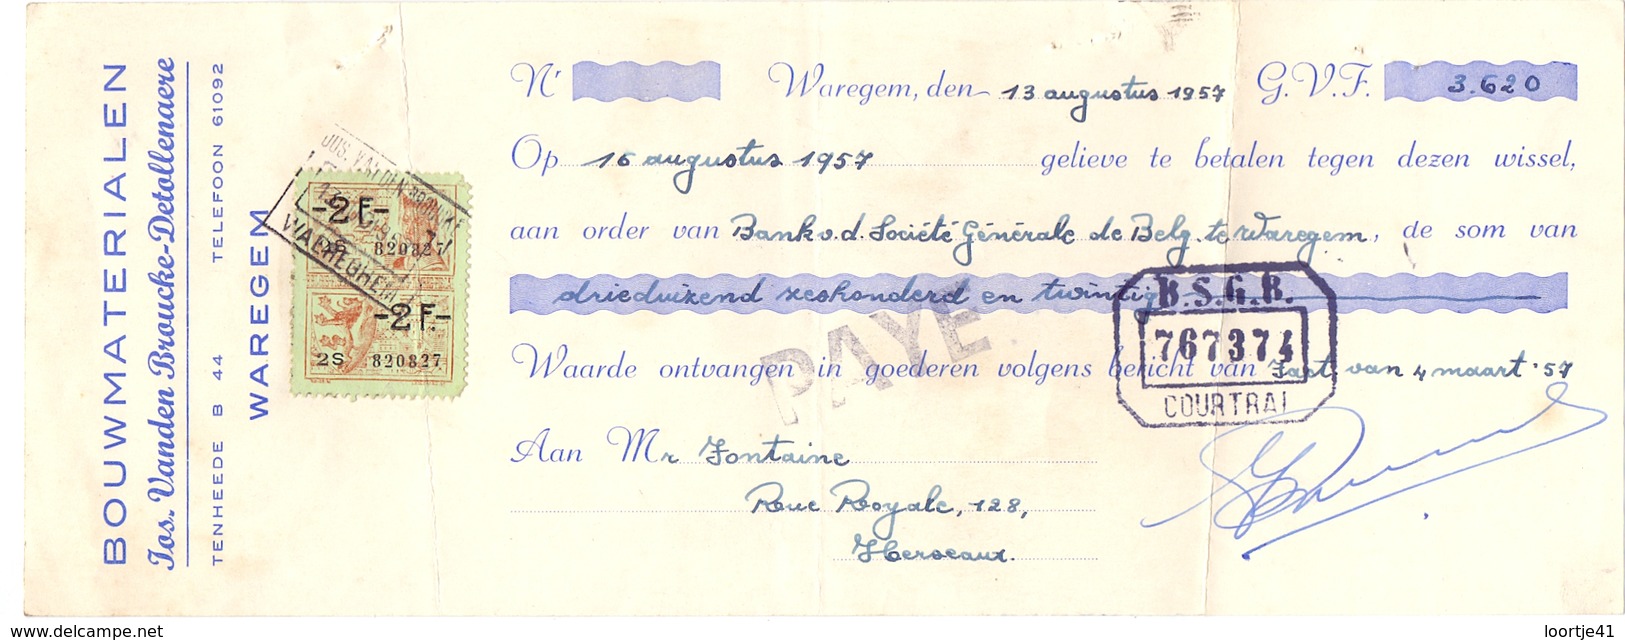 BOUWMATERIALEN
Jos. Vanden Broucke-Detollenaere
TENHEEDE B 44 TELEFOON 61092
WAREGEM
-2F-
2S 820827
WAREGHEM
-2F.-
2S 820827
Nr Waregem, den 13 augustus 1957 G.V.F. 3.620
Op 16 augustus 1957 gelieve te betalen tegen dezen wissel,
aan order van Bank v.d. Société Générale de Belg. te Waregem, de som van
drieduizend zeshonderd en twintig
B.S.G.B.
767374
COURTRAI
PAYÉ
Waarde ontvangen in goederen volgens bericht van Fact. van 4 maart '57
Aan Mr Fontaine
Rue Royale, 128,
Herseaux.
© www.delcampe.net
loortje41